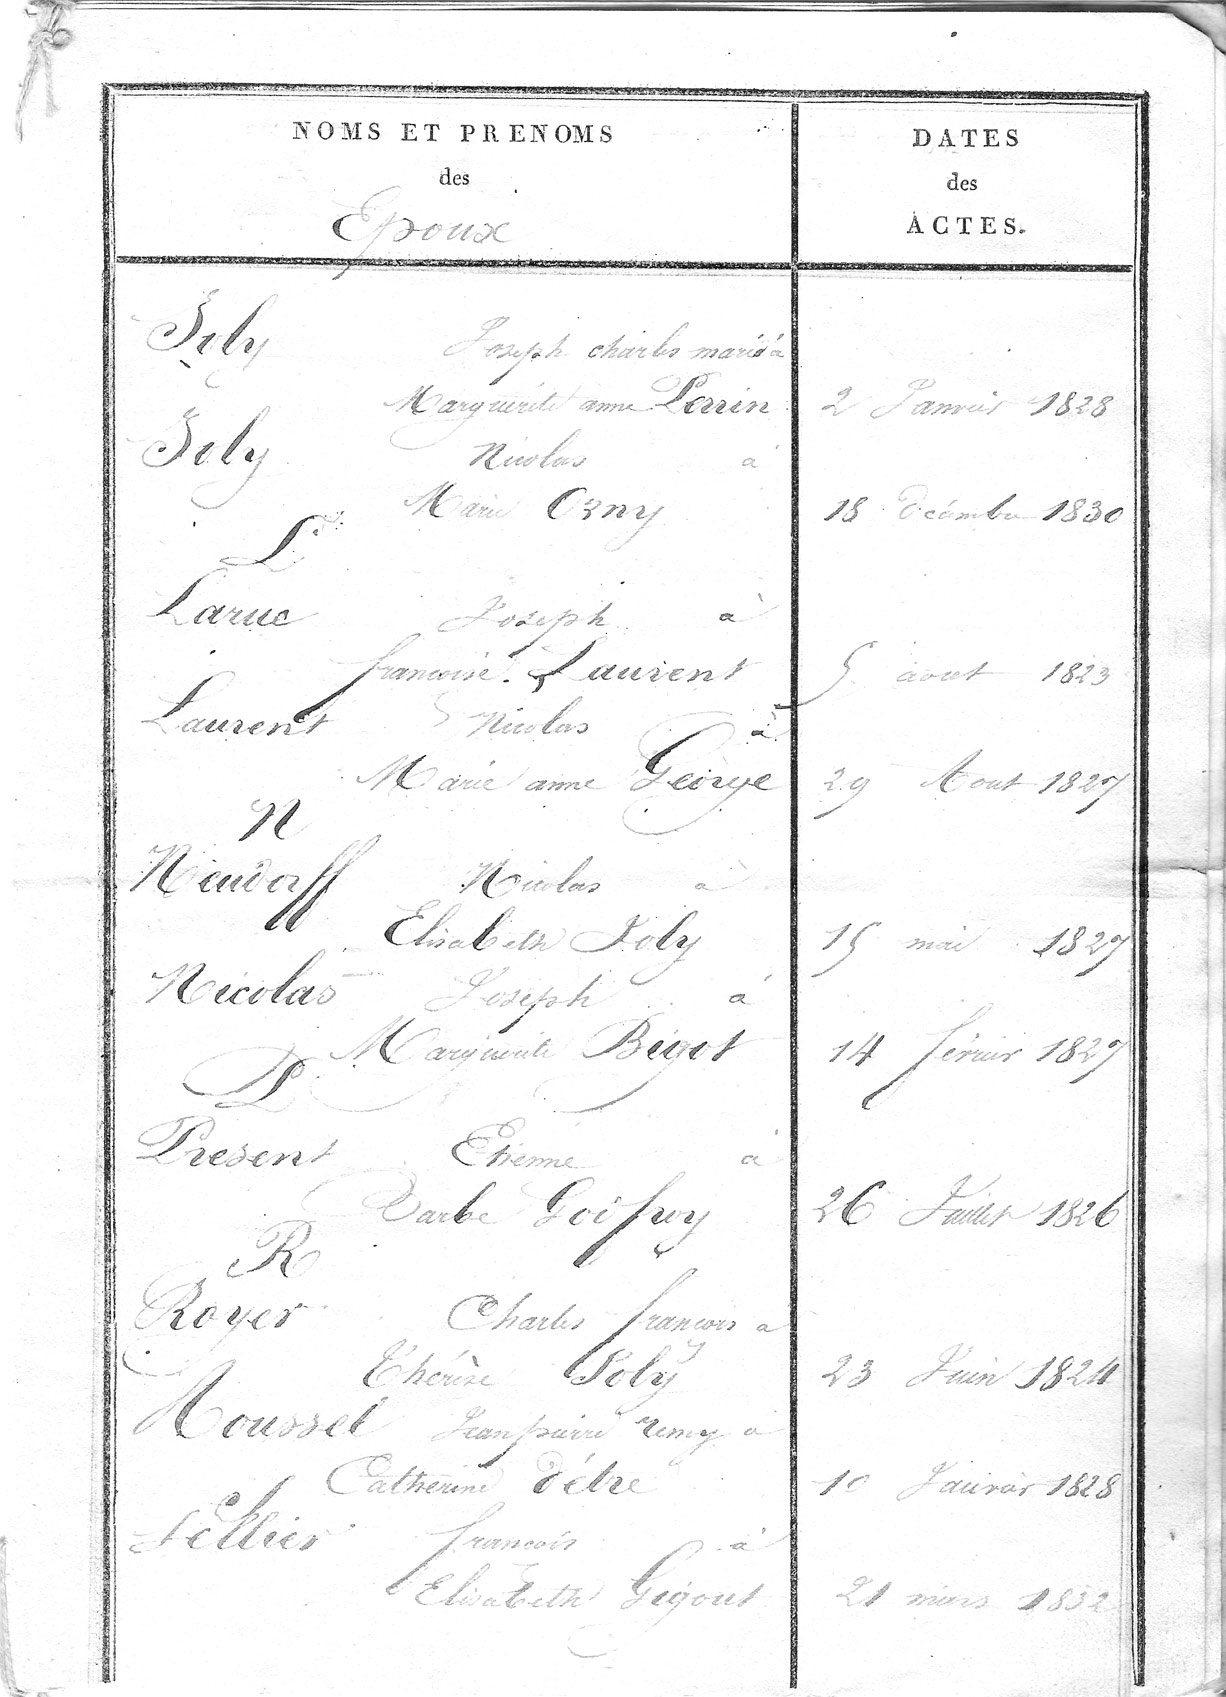 NOMS ET PRENOMS
des
Epoux
DATES
des
ACTES.
Joly Joseph charles marié à
Marguerite anne Perrin 2 Janvier 1828
Joly Nicolas à
Marie Orny 18 Décembre 1830
L
Larue Joseph à
francoise Laurent 5 aout 1823
Laurent Nicolas à
Marie anne George 29 Aout 1827
N
Neudorff Nicolas à
Elisabeth Joly 15 mai 1827
Nicolas Joseph à
Marguerite Bigot 14 février 1827
P
Present Etienne à
Barbe Goifroy 26 Juillet 1826
R
Royer Charles francois a
Thérèse Joly 23 Juin 1824
Roussel Jean pierre remy a
Catherine Détre 10 Janvier 1828
S
Sellier francois à
Elisabeth Gigout 21 mars 1832